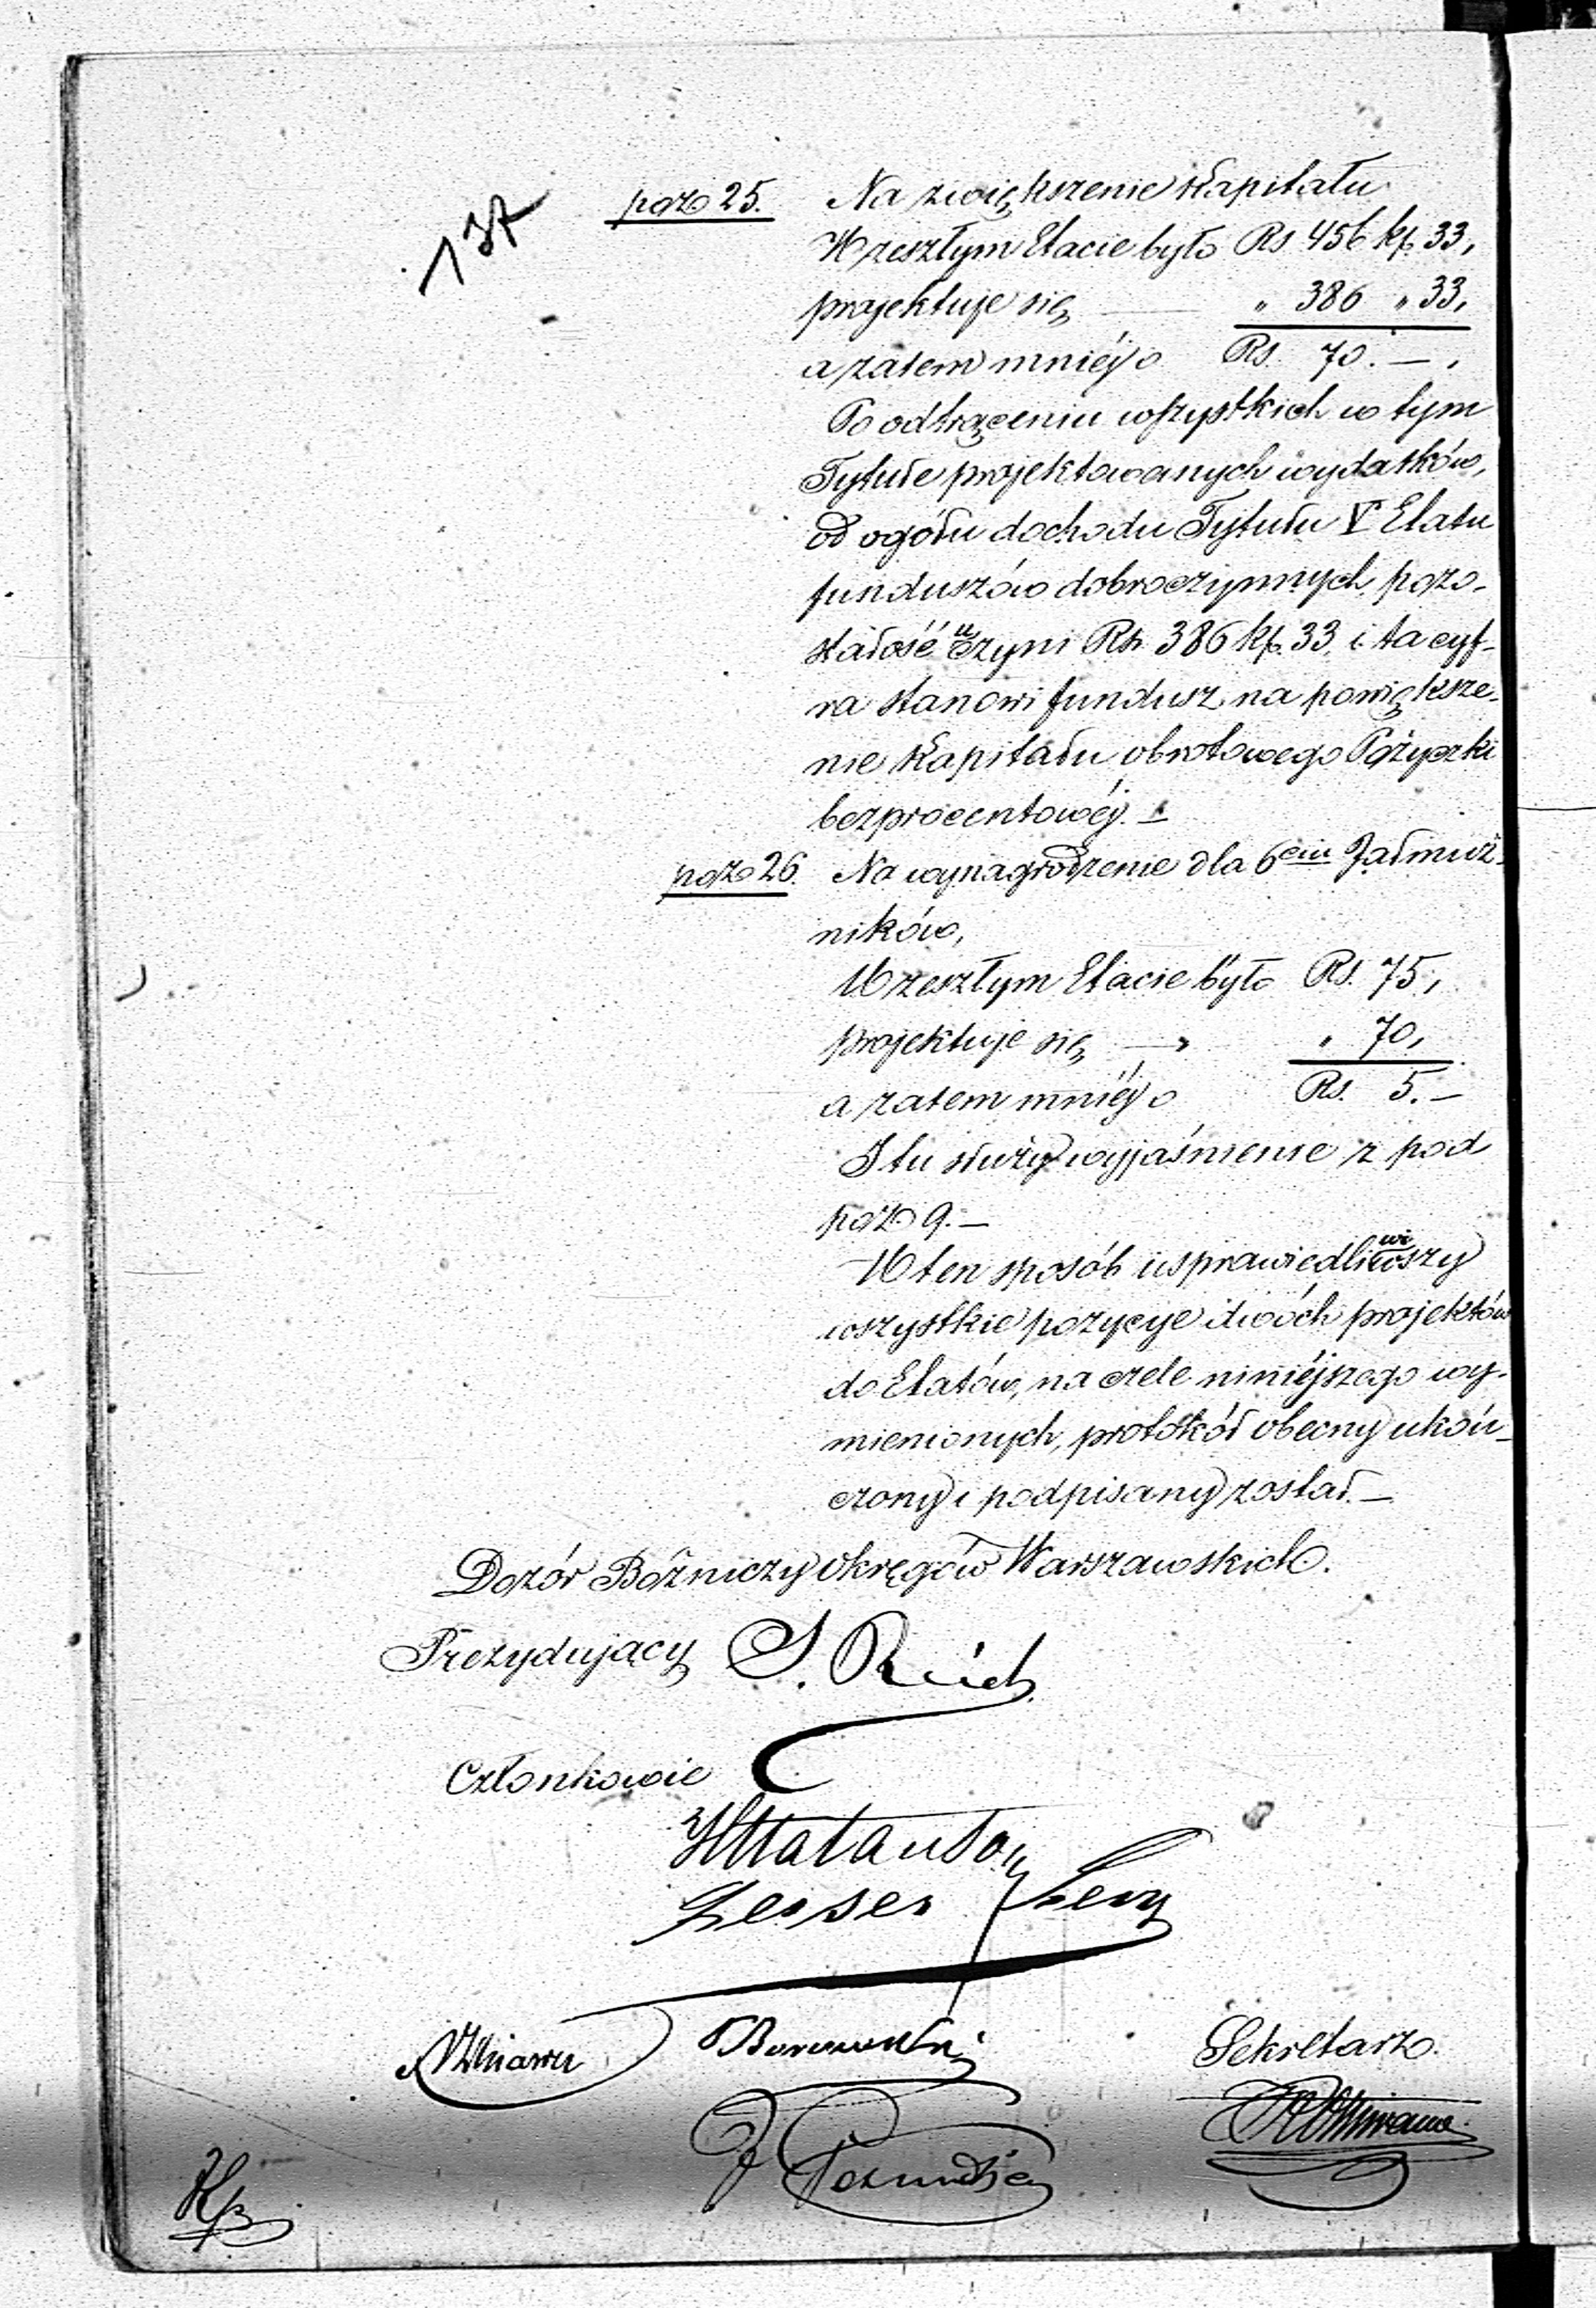 137
pozo 25. Na zwiększenie kapitału
W zeszłym Etacie było Rs 456 kp. 33,
projektuje się — " 386 " 33,
a zatem mniéj o Rs. 70. — .
Po odtrąceniu wszystkich w tym
Tytule projektowanych wydatków,
od ogółu dochodu Tytułu V Etatu
funduszów dobroczynnych, pozo-
stałość uczyni Rs. 386 kp. 33, i ta cyf-
ra stanowi fundusz na powiększe-
nie kapitału obrotowego Pożyczki
bezprocentowéj. —
pozo 26. Na wynagrodzenie dla 6ciu Jałmuż-
ników,
W zeszłym Etacie było Rs. 75,
projektuje się — " 70,
a zatem mniéj o Rs. 5. —
I tu służy wyjaśnienie z pod
pozo 9. —
W ten sposób usprawiedliwiwszy
wszystkie pozycye dwóch projektów
do Etatów, na czele niniéjszego wy-
mienionych, protokół obecny ukoń-
czony i podpisany został. —
Dozór Bóżniczy Okręgów Warszawskich.
Prezydujący S. Reich
Członkowie
H Natanson
Leiser Levy
Sekretarz.